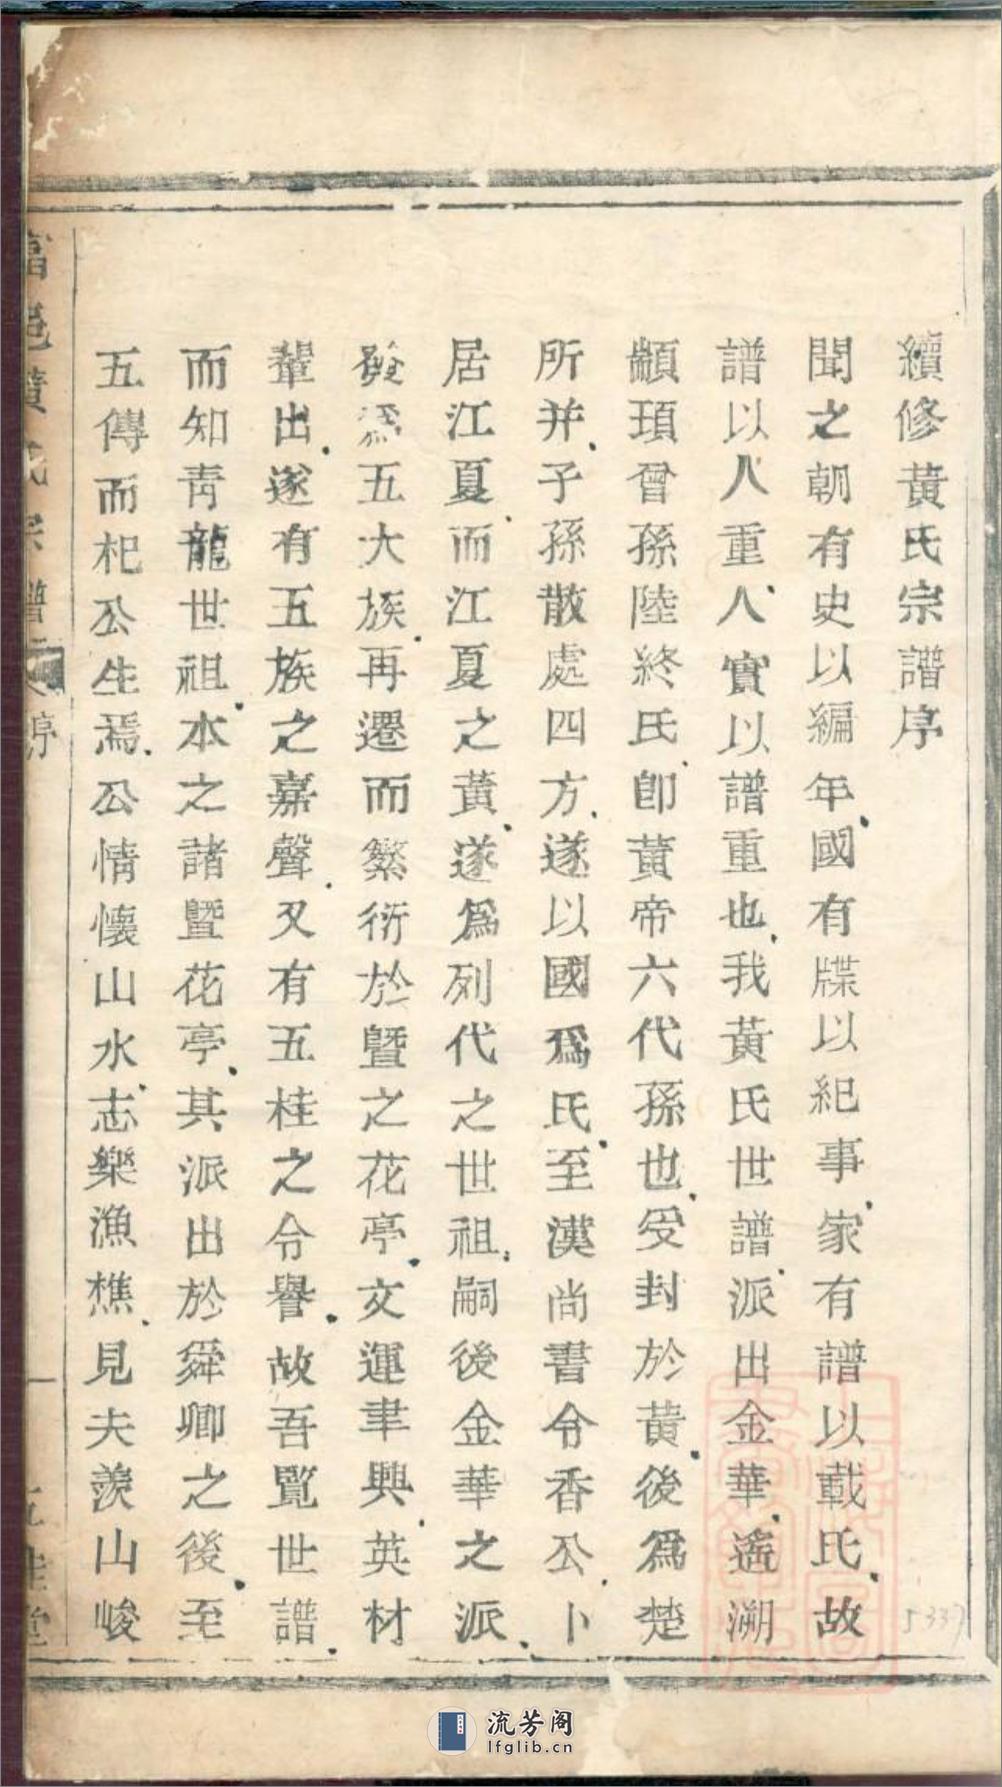 續修黃氏宗譜序
聞之朝有史以編年國有牒以紀事家有譜以載氏故
譜以人重人實以譜重也我黃氏世譜派出金華遙溯
顓頊曾孫陸終氏卽黃帝六代孫也受封於黃後爲楚
所并子孫散處四方遂以國爲氏至漢尚書令香公卜
居江夏而江夏之黃遂爲列代之世祖嗣後金華之派
發爲五大族再遷而繁衍於暨之花亭文運聿興英材
輩出遂有五族之嘉聲又有五桂之令譽故吾覽世譜
而知青龍世祖本之諸暨花亭其派出於舜卿之後至
五傳而杞公生焉公情懷山水志樂漁樵見夫羨山峻
富邑黃氏宗譜 序 一 五桂堂
5337
流芳阁
lfglib.cn